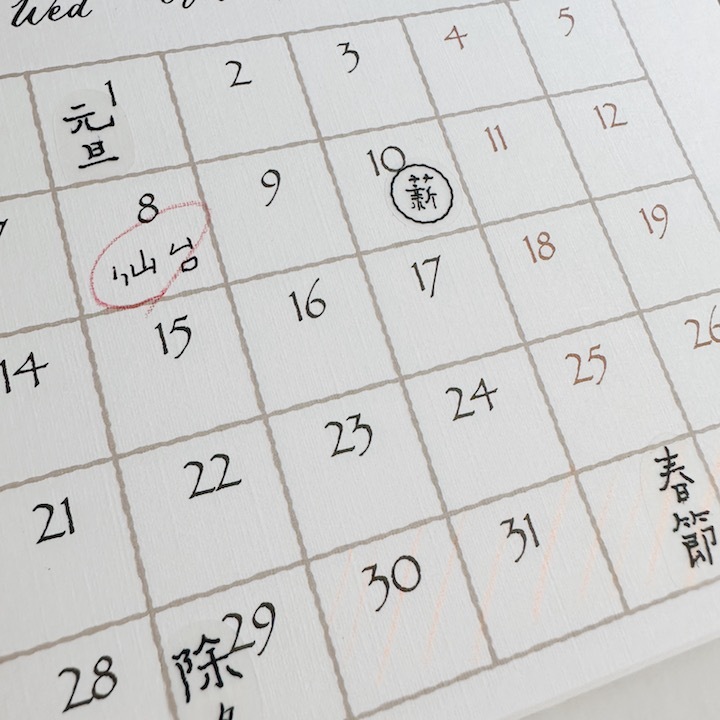 Wed
1 2 3 4 5
元旦
8 9 10 11 12
仙台
薪
14 15 16 17 18 19
21 22 23 24 25 26
28 29 30 31
除
春節